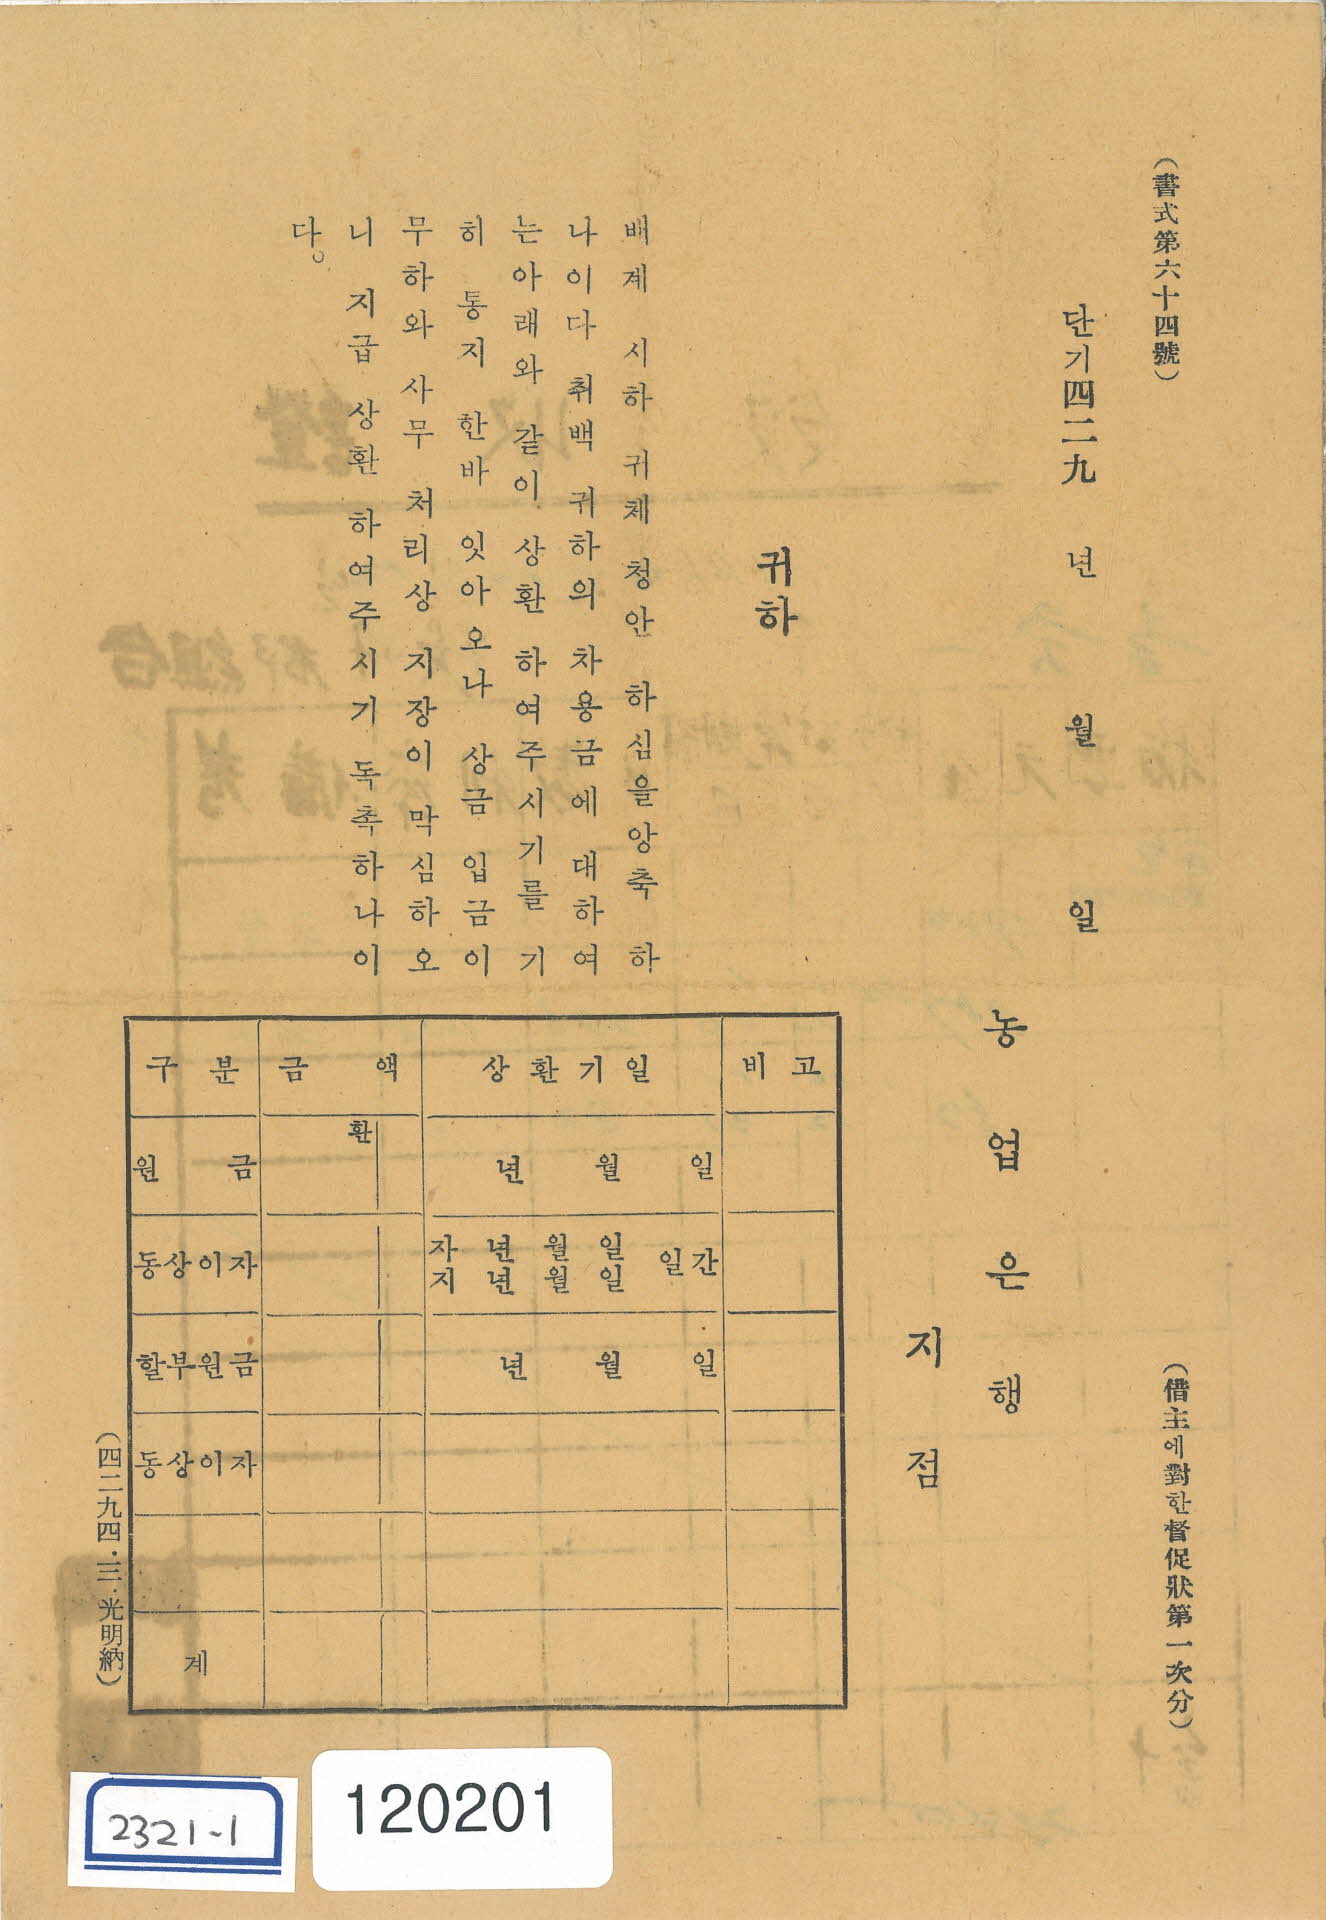 (書式第六十四號)
(借主에對한督促狀第一次分)
단기四二九 년 월 일
농업은행
지점
귀하
배계 시하 귀체 청안 하심을앙축 하
나이다 취백 귀하의 차용금에 대하여
는아래와 같이 상환 하여주시기를 기
히 통지 한바 잇아오나 상금 입금이
무하와 사무 처리상 지장이 막심하오
니 지급 상환 하여주시기 독촉하나이
다。
구분 금액 상환기일 비고
원금 환 년 월 일
동상이자 자 년 월 일 일간
지 년 월 일
할부원금 년 월 일
동상이자
계
(四二九四·三·光明納)
2321-1
120201